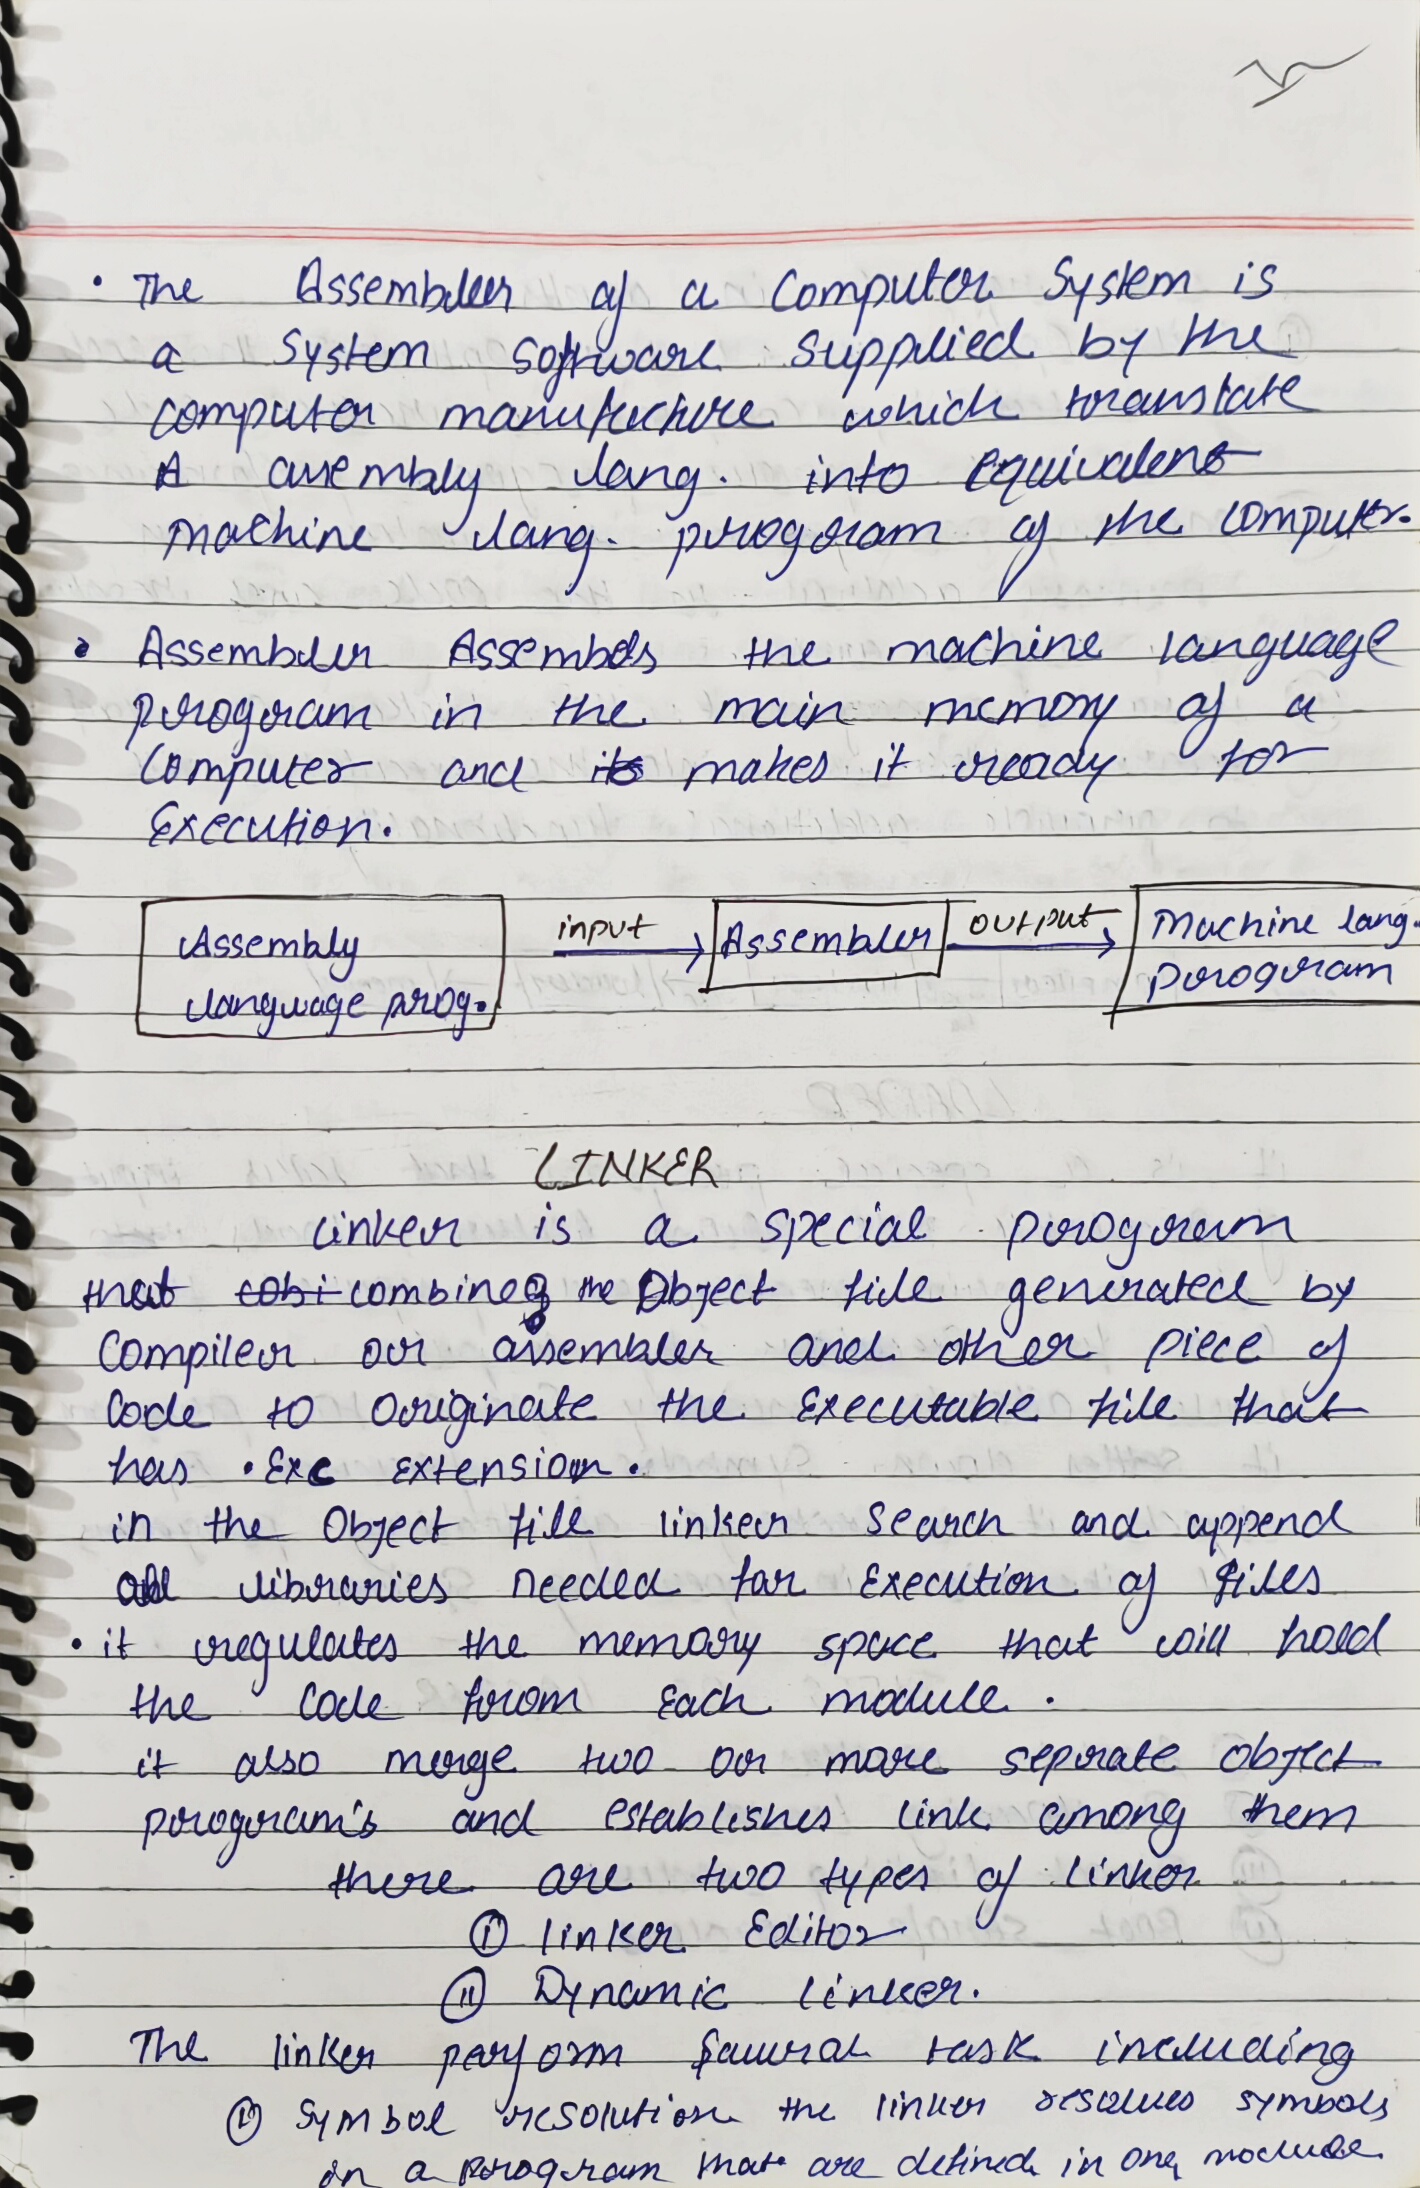 • The Assembler of a Computer System is
a System Software Supplied by the
computer manufecture which translate
A assembly lang. into equivalent
machine lang. program of the computer.
• Assembler Assembels the machine language
program in the main memory of a
Computer and its makes it ready for
Execution.
Assembly language prog. input Assembler output Machine lang. program
LINKER
linker is a special program
that cobi combines the Object file generated by
Compiler or assembler and other piece of
Code to originate the Executable file that
has .Exe extension.
in the Object file linker Search and append
all libraries needed for Execution of files
• it regulates the memory space that will hold
the Code from Each module.
it also merge two or more seprate object
program's and establishes link among them
there are two types of linker
(i) linker Editor
(ii) Dynamic linker.
The linker perform task including
(i) Symbol resolution the linker resolves symbols
in a program that are defined in one module